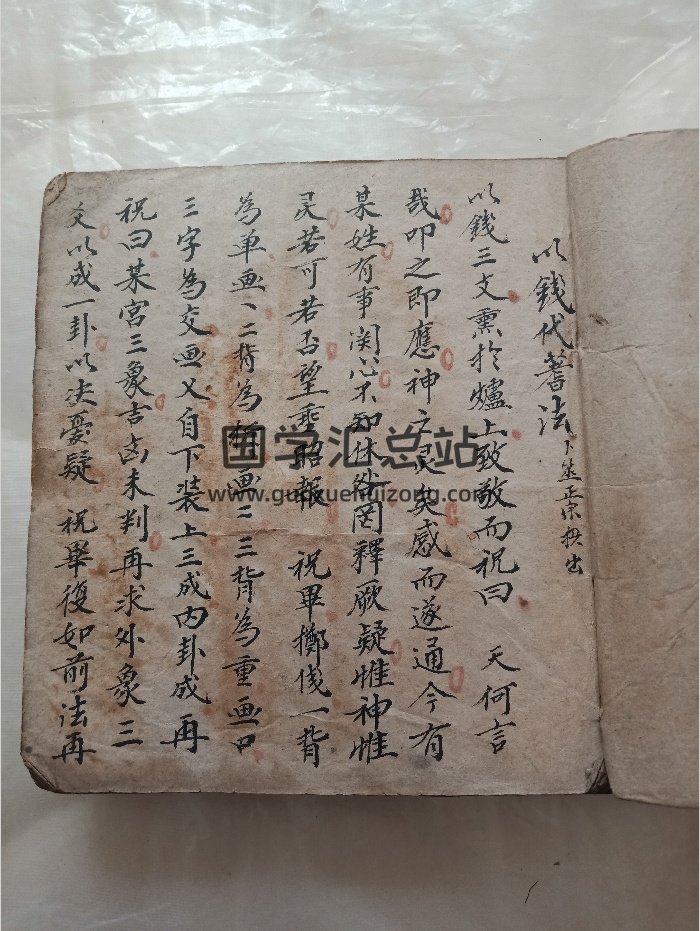 以錢代蓍法 卜筮正宗摘出
以錢三文熏於爐上致敬而祝曰 天何言
哉叩之即應神之灵矣感而遂通今有
某姓有事関心不知休咎罔釋厥疑惟神惟
灵若可若否望垂昭報 祝畢擲錢一背
為单画、二背為拆画二三背為重画口
三字為交画乂自下装上三成内卦成再
祝曰某宮三象吉凶未判再求外象三
爻以成一卦以决憂疑 祝畢復如前法再
国学汇总站
www.guoxuehuizong.com